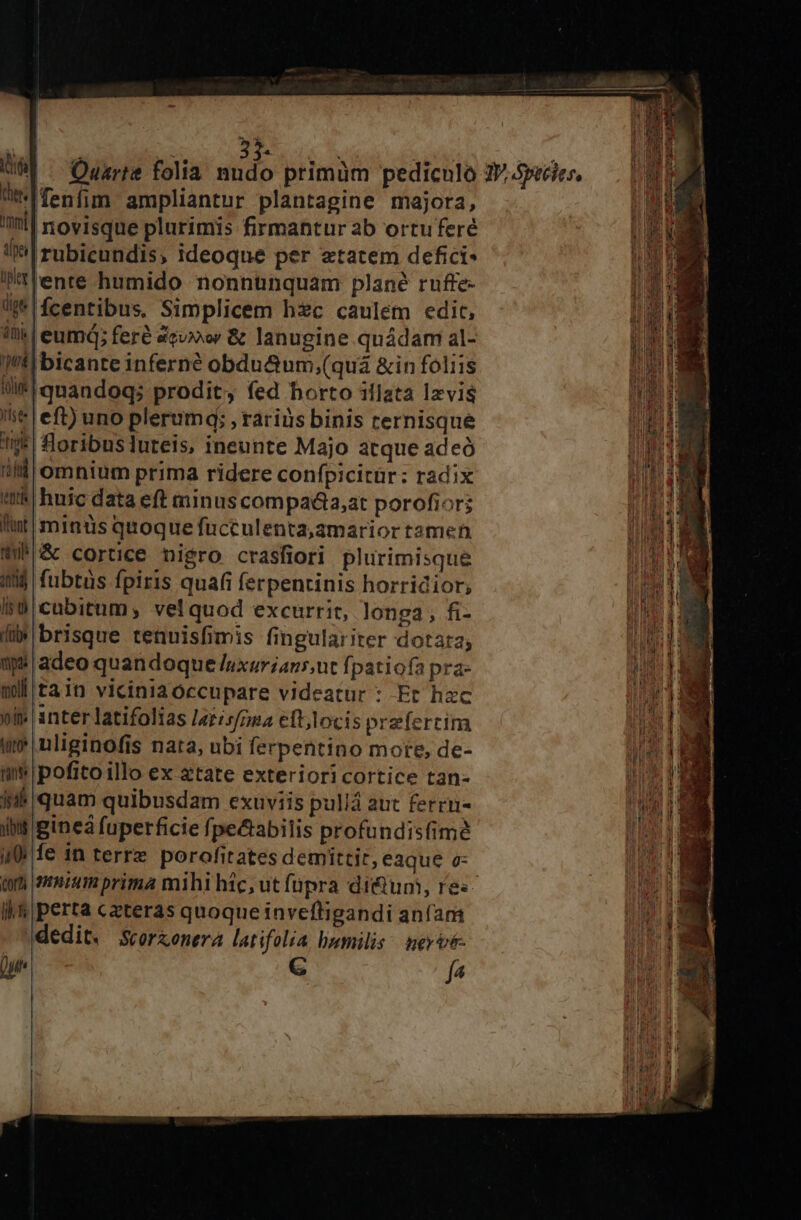 33.
Quartæ folia nudo primùm pediculo IV. Species.
ſenſim ampliantur plantagine majora,
novisque plurimis firmantur ab ortu ferè
rubicundis, ideoque per ætatem defici-
ente humido nonnunquam planè ruffe-
ſcentibus. Simplicem hæc caulem edit,
eumq; ferè ἄφυλλον & lanugine quâdam al-
bicante infernè obductum,(quâ & in foliis
quandoq; prodit, ſed horto illata lævis
eſt) uno plerumq; , rariùs binis ternisque
floribus luteis, ineunte Majo atque adeò
omnium prima ridere conſpicitur: radix
huic data eſt minus compacta,at poroſior;
minùs quoque ſucculenta,amarior tamen
& cortice nigro crasſiori plurimisque
ſubtùs ſpiris quaſi ſerpentinis horridior,
cubitum, vel quod excurrit, longa, fi-
brisque tenuisſimis ſingulariter dotata,
adeo quandoque luxurians,ut ſpatioſa pra-
ta in vicinia óccupare videatur : Et hæc
inter latifolias latisſima eſt,locis præſertim
uliginoſis nata, ubi ſerpentino more, de-
poſito illo ex ætate exteriori cortice tan-
quam quibusdam exuviis pullâ aut ferru-
gineâ ſuperficie ſpectabilis profundisſimè
ſe in terræ poroſitates demittit, eaque o-
mnium prima mihi hîc, ut ſupra dictum, re-
perta cæteras quoque inveſtigandi anſam
dedit. Scorzonera latifolia humilis nervo-
G ſa